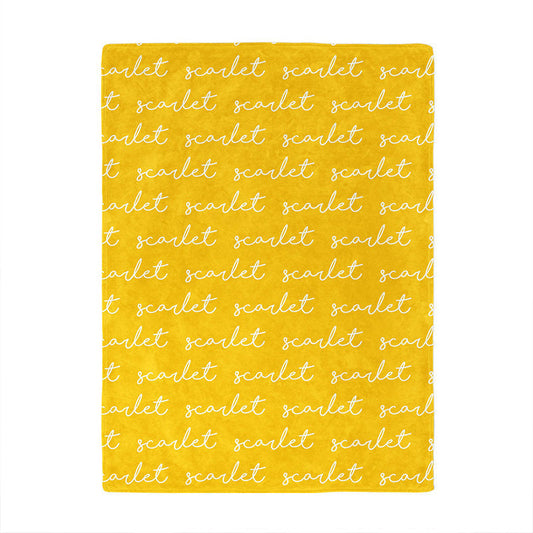 carlet scarlet scarlet scarl
t scarlet scarlet scarlet s
carlet scarlet scarlet scarl
t scarlet scarlet scarlet s
carlet scarlet scarlet scarl
t scarlet scarlet scarlet s
carlet scarlet scarlet scarl
t scarlet scarlet scarlet s
carlet scarlet scarlet scarl
t scarlet scarlet scarlet s
carlet scarlet scarlet scarl
t scarlet scarlet scarlet s
carlet scarlet scarlet scarl